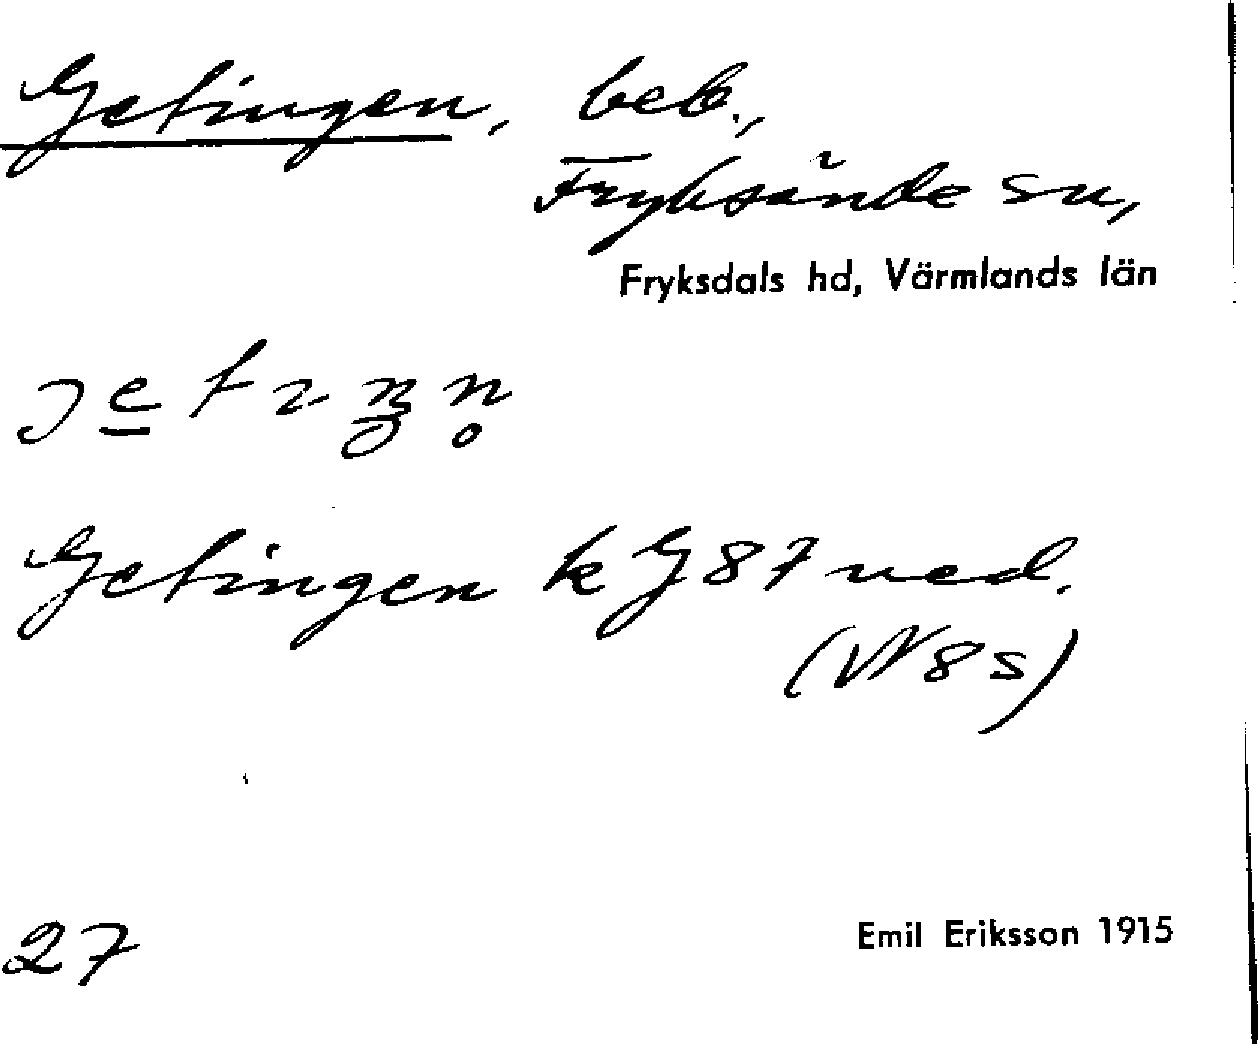 Getingen, beb.,
Fryksände sn,
Fryksdals hd, Värmlands län
Getingen k G 87 ned.
(VN 8 s)
27
Emil Eriksson 1915